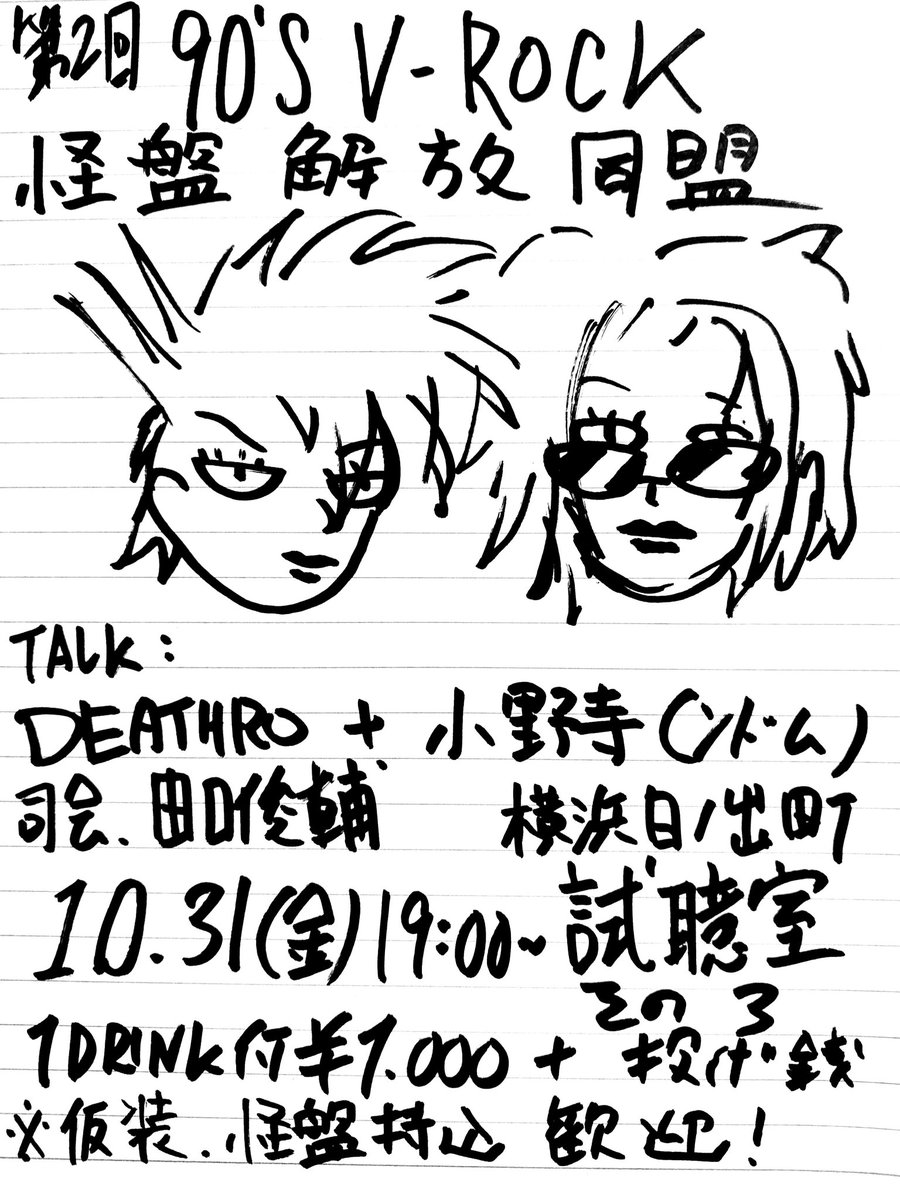 第2回 90'S V-ROCK
怪盤解放同盟
TALK:
DEATHRO + 小野寺(ンドム)
司会.田口俊輔 横浜日ノ出町
10.31(金)19:00~ 試聴室
その3
1DRINK付¥1.000 + 投げ銭
※仮装.怪盤持込 歓迎!